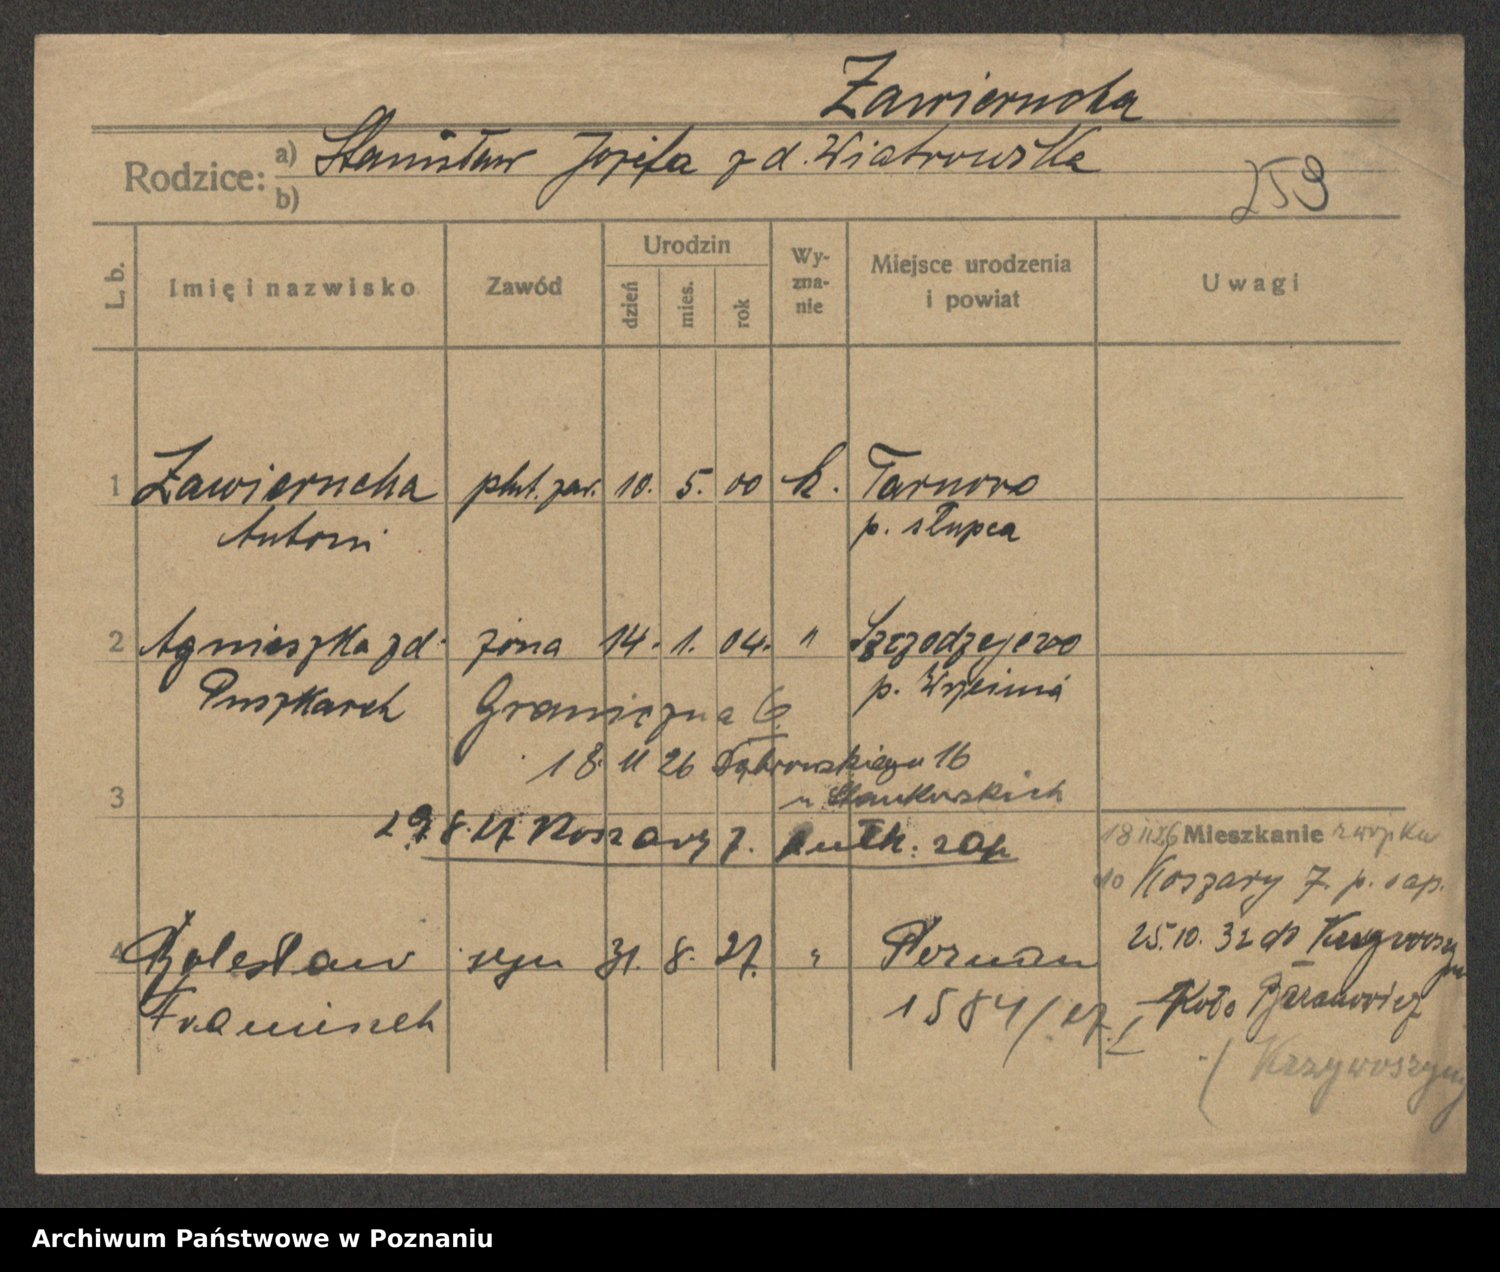 Zawierucha
Rodzice: a) Stanisław Józefa z d. Wiatrowska
b)
259
L. b. Imię i nazwisko Zawód Urodzin dzień mies. rok Wy-zna-nie Miejsce urodzenia i powiat Uwagi
1 Zawierucha plut. zaw. 10. 5. 00 k. Tarnowo
Antoni p. Słupca
2 Agnieszka zd. żona 14. 1. 04. " Szczodrzejewo
Puszkarek p. Września
Graniczna 6
18 11 26 Dąbrowskiego 16
3 u Stankowskich
29.8.27 Koszary 7. pułk. sap
18 11 26 Mieszkanie z wojska
do Koszary 7. p. sap.
25.10.32 do Krzywoszyn
4 Bolesław syn 31. 8. 27. " Poznań
Koło Baranowicz
Franciszek 1584/27
(Krzywoszyny
Archiwum Państwowe w Poznaniu